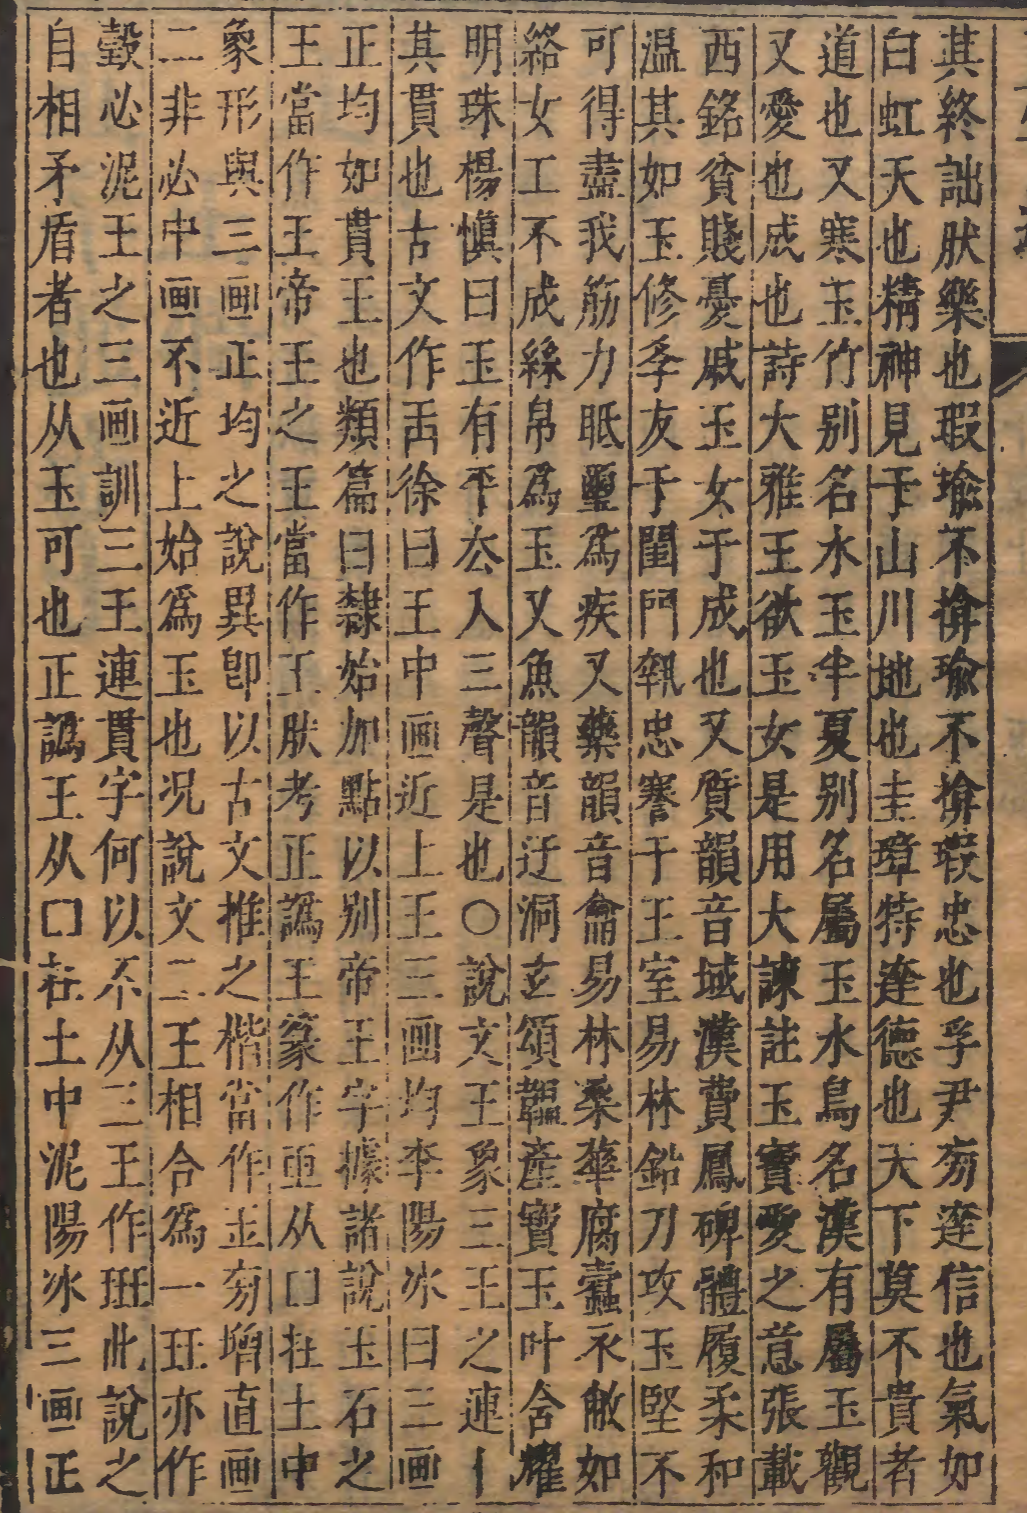 其終詘肰樂也瑕瑜不揜瑜不揜瑕忠也孚尹㫄達信也氣如
白虹天也精神見于山川地也圭璋特達德也天下莫不貴者
道也又寒玉竹别名水玉半夏别名屬玉水鳥名漢有屬玉觀
又愛也成也詩大雅王欲玉女是用大諫註玉寳愛之意張載
西銘貧賤憂戚玉女于成也又質韻音域漢費鳳碑體履柔和
温其如玉修孝友于閨門執忠謇于王室易林鉛刀攻玉堅不
可得盡我筋力胝璽為疾又藥韻音龠易林桑華腐蠹衣敝如
絡女工不成絲帛為玉又魚韻音迂洞玄頌韞產寳玉叶含耀
明珠楊愼曰玉有平去入三聲是也〇說文王象三王之連丨
其貫也古文作𤣪徐曰王中画近上王三画均李陽冰曰三画
正均如貫王也類篇曰隸始加點以别帝王字據諸說玉石之
王當作王帝王之王當作𠙻肰考正譌王篆作亜从口在土中
象形與三画正均之說異卽以古文推之楷當作玉㫄增直画
二非必中画不近上始爲玉也况說文二王相合爲一玨亦作
瑴必泥王之三画訓三王連貫字何以不从三王作班此說之
自相矛盾者也从玉可也正譌王从口在土中泥陽冰三画正